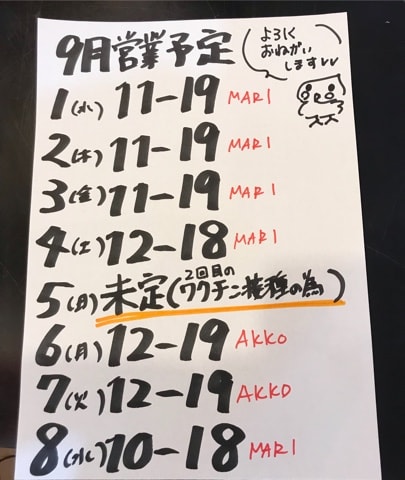 9月営業予定
よろしく
おねがい
しますvv
1(水) 11-19 MARI
2(木) 11-19 MARI
3(金) 11-19 MARI
4(土) 12-18 MARI
5(日) 未定(2回目のワクチン接種の為)
6(月) 12-19 AKKO
7(火) 12-19 AKKO
8(水) 10-18 MARI